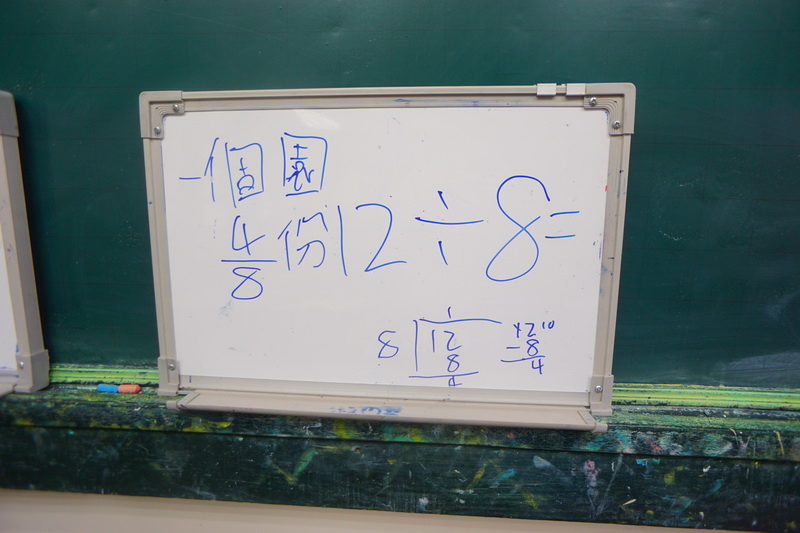 一個圓
4/8 份 12÷8=
1
8 12 12 10
8 -8
4 4